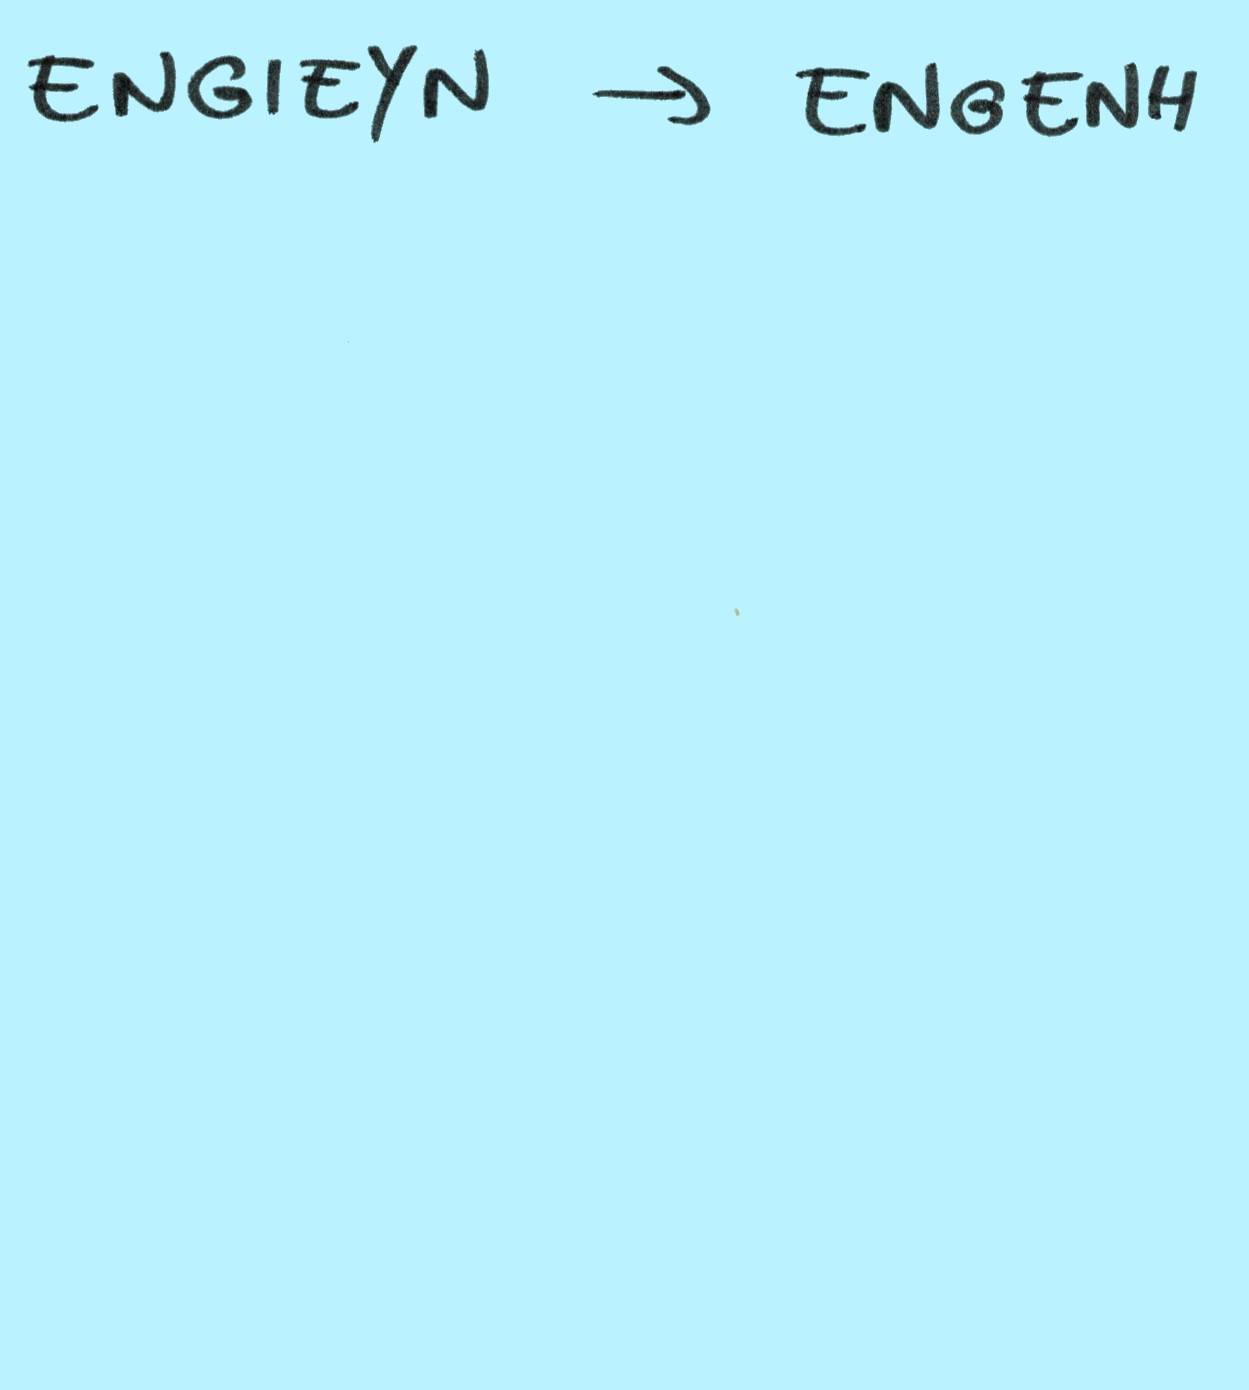 ENGIEYN → ENGENH